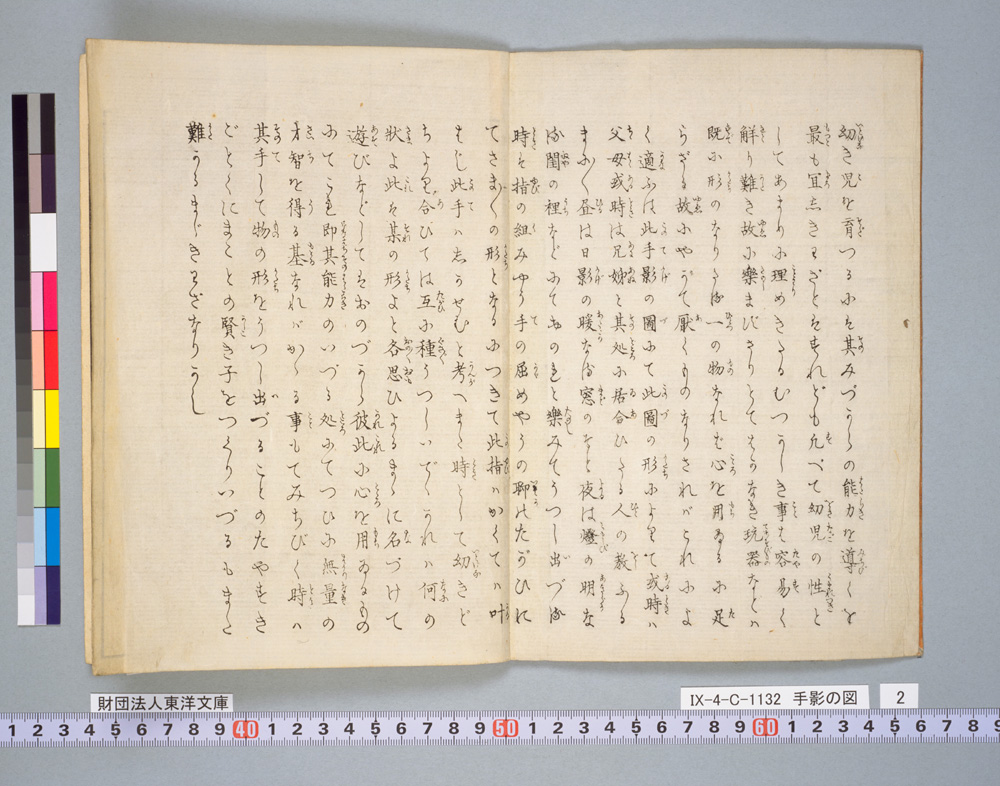 幼き児を育つるには其みづからの能力を導くを
最も宜しきわざとはすれども凡べて幼児の性と
してあまりに理めきたるむつかしき事は容易く
解り難き故に楽まずさりとてはかなき玩器などハ
既に形のなりたる一の物なれば心を用ゐるに足
らざる故にやがて厭くものなりされバこれによ
く適ふは此手影の圖にて此圖の形によりて或時ハ
父母或時は兄姉と其処に居合ひたる人の教ふる
まに〱昼は日影の暖なる窓のもと夜は燈の明な
る閨の裡などにておのれと樂みてうつし出づる
時は指の組みやう手の屈めやうの聊のたがひに
てさま〲の形となるにつきて此指ハかくてハ叶
はじ此手ハしかせむと考へまた時としては幼きど
ちより合ひては互に種々うつしいでゝこれハ何の
状よ此は某の形よと各思ひよるまゝに名づけて
遊びなどしてはおのづから彼此に心を用ゐるもの
にてこは即其能力のいづる処にてつひに無量の
才智を得る基なれバかゝる事もてみちびく時ハ
其手して物の形をうつし出づることのたやすき
ごとくにまことの賢き子をつくりいづるもまた
難かるまじきわざなりかし
財団法人東洋文庫
IX-4-C-1132 手影の図
2
1 2 3 4 5 6 7 8 9 40 1 2 3 4 5 6 7 8 9 50 1 2 3 4 5 6 7 8 9 60 1 2 3 4 5 6 7 8 9